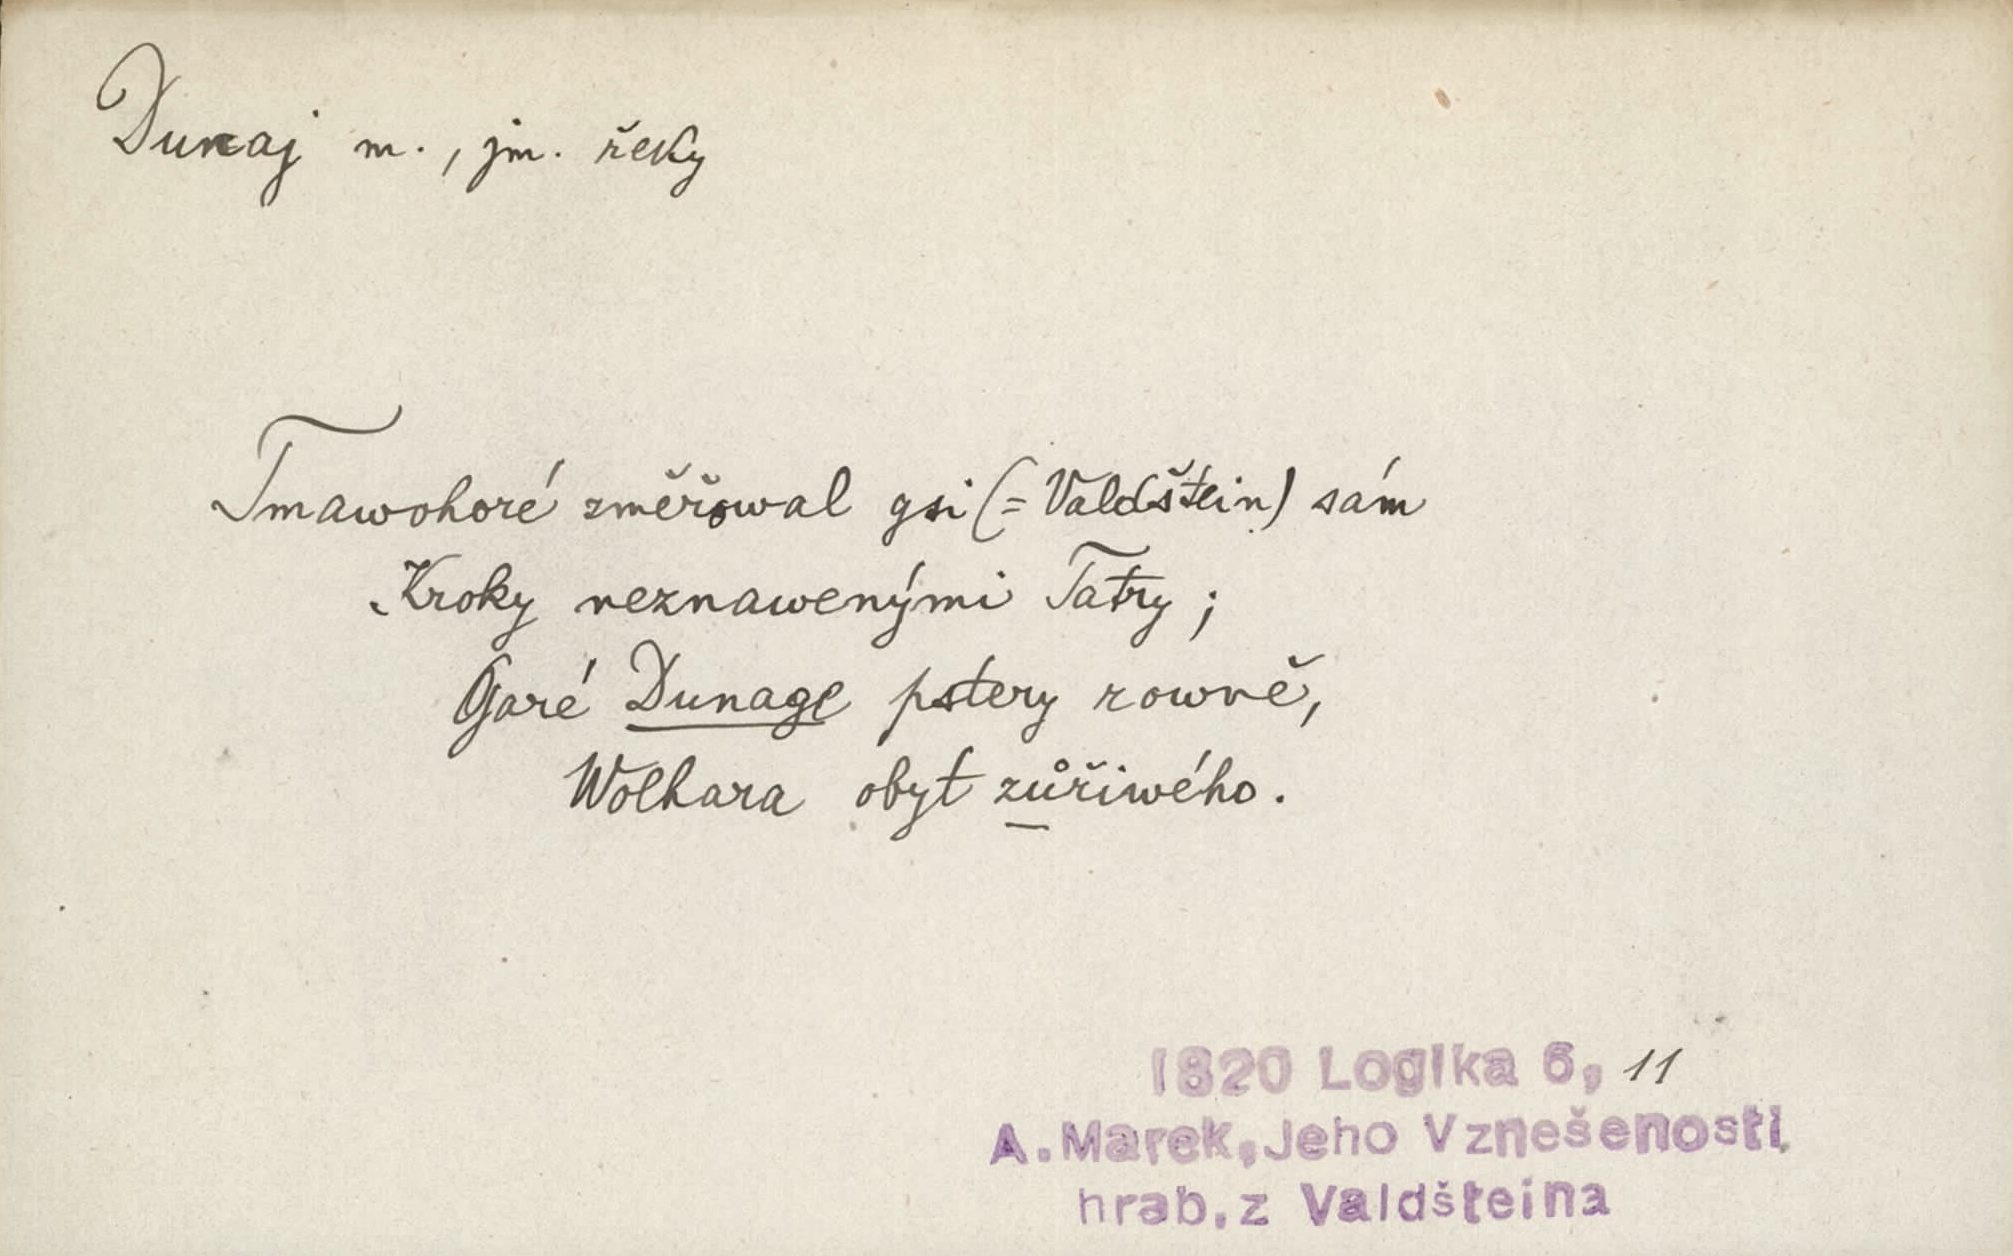 Dunaj m., jm. řeky
Tmawohoré změřowal gsi (= Valdštein) sám
Kroky neznawenými Tatry;
Garé Dunage pstery rowně,
Wolhara obyt zůřiwého.
1820 Logika 6, 11
A. Marek, Jeho Vznešenosti
hrab. z Valdšteina